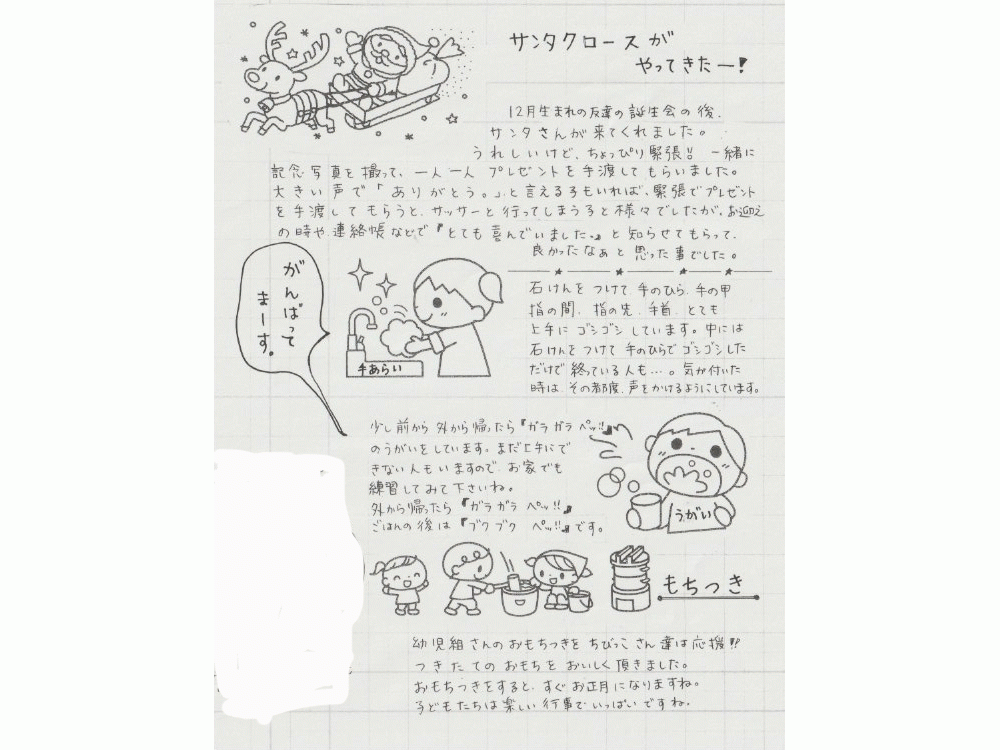 サンタクロースが
やってきたー!
12月生まれの友達の誕生会の後、
サンタさんが来てくれました。
うれしいけど、ちょっぴり緊張!! 一緒に
記念写真を撮って、一人一人 プレゼントを手渡してもらいました。
大きい声で「ありがとう。」と言える子もいれば、緊張でプレゼント
を手渡してもらうと、サッサーと行ってしまう子と様々でしたが、お迎え
の時や連絡帳などで『とても喜んでいました。』と知らせてもらって、
良かったなぁと思った事でした。
がんばって
まーす。
手あらい
石けんをつけて、手のひら、手の甲
指の間、指の先、手首、とても
上手にゴシゴシしています。中には
石けんをつけて手のひらでゴシゴシした
だけで終っている人も…。気が付いた
時は、その都度、声をかけるようにしています。
少し前から外から帰ったら『ガラガラペッ!!』
のうがいをしています。まだ上手にで
きない人もいますので、お家でも
練習してみて下さいね。
外から帰ったら『ガラガラペッ!!』
ごはんの後は『ブクブク ペッ!!』です。
うがい
もちつき
幼児組さんのおもちつきをちびっこさん達は応援!!
つきたてのおもちをおいしく頂きました。
おもちつきをすると、すぐお正月になりますね。
子どもたちは楽しい行事でいっぱいですね。